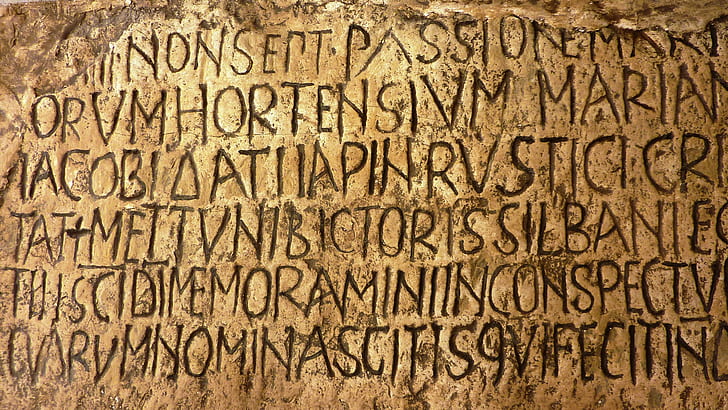 IIII NON SEPT · PASSIONE MART
ORVM HORTENSIVM MARIAN
IACOBI DATI IAPIN RVSTICI CRI
TAT+ MELTVNI BICTORIS SILBANI EG
TII SCI DI MEMORAMINI IN CONSPECTV
QVARVM NOMINA SCITIS QVI FECIT IN